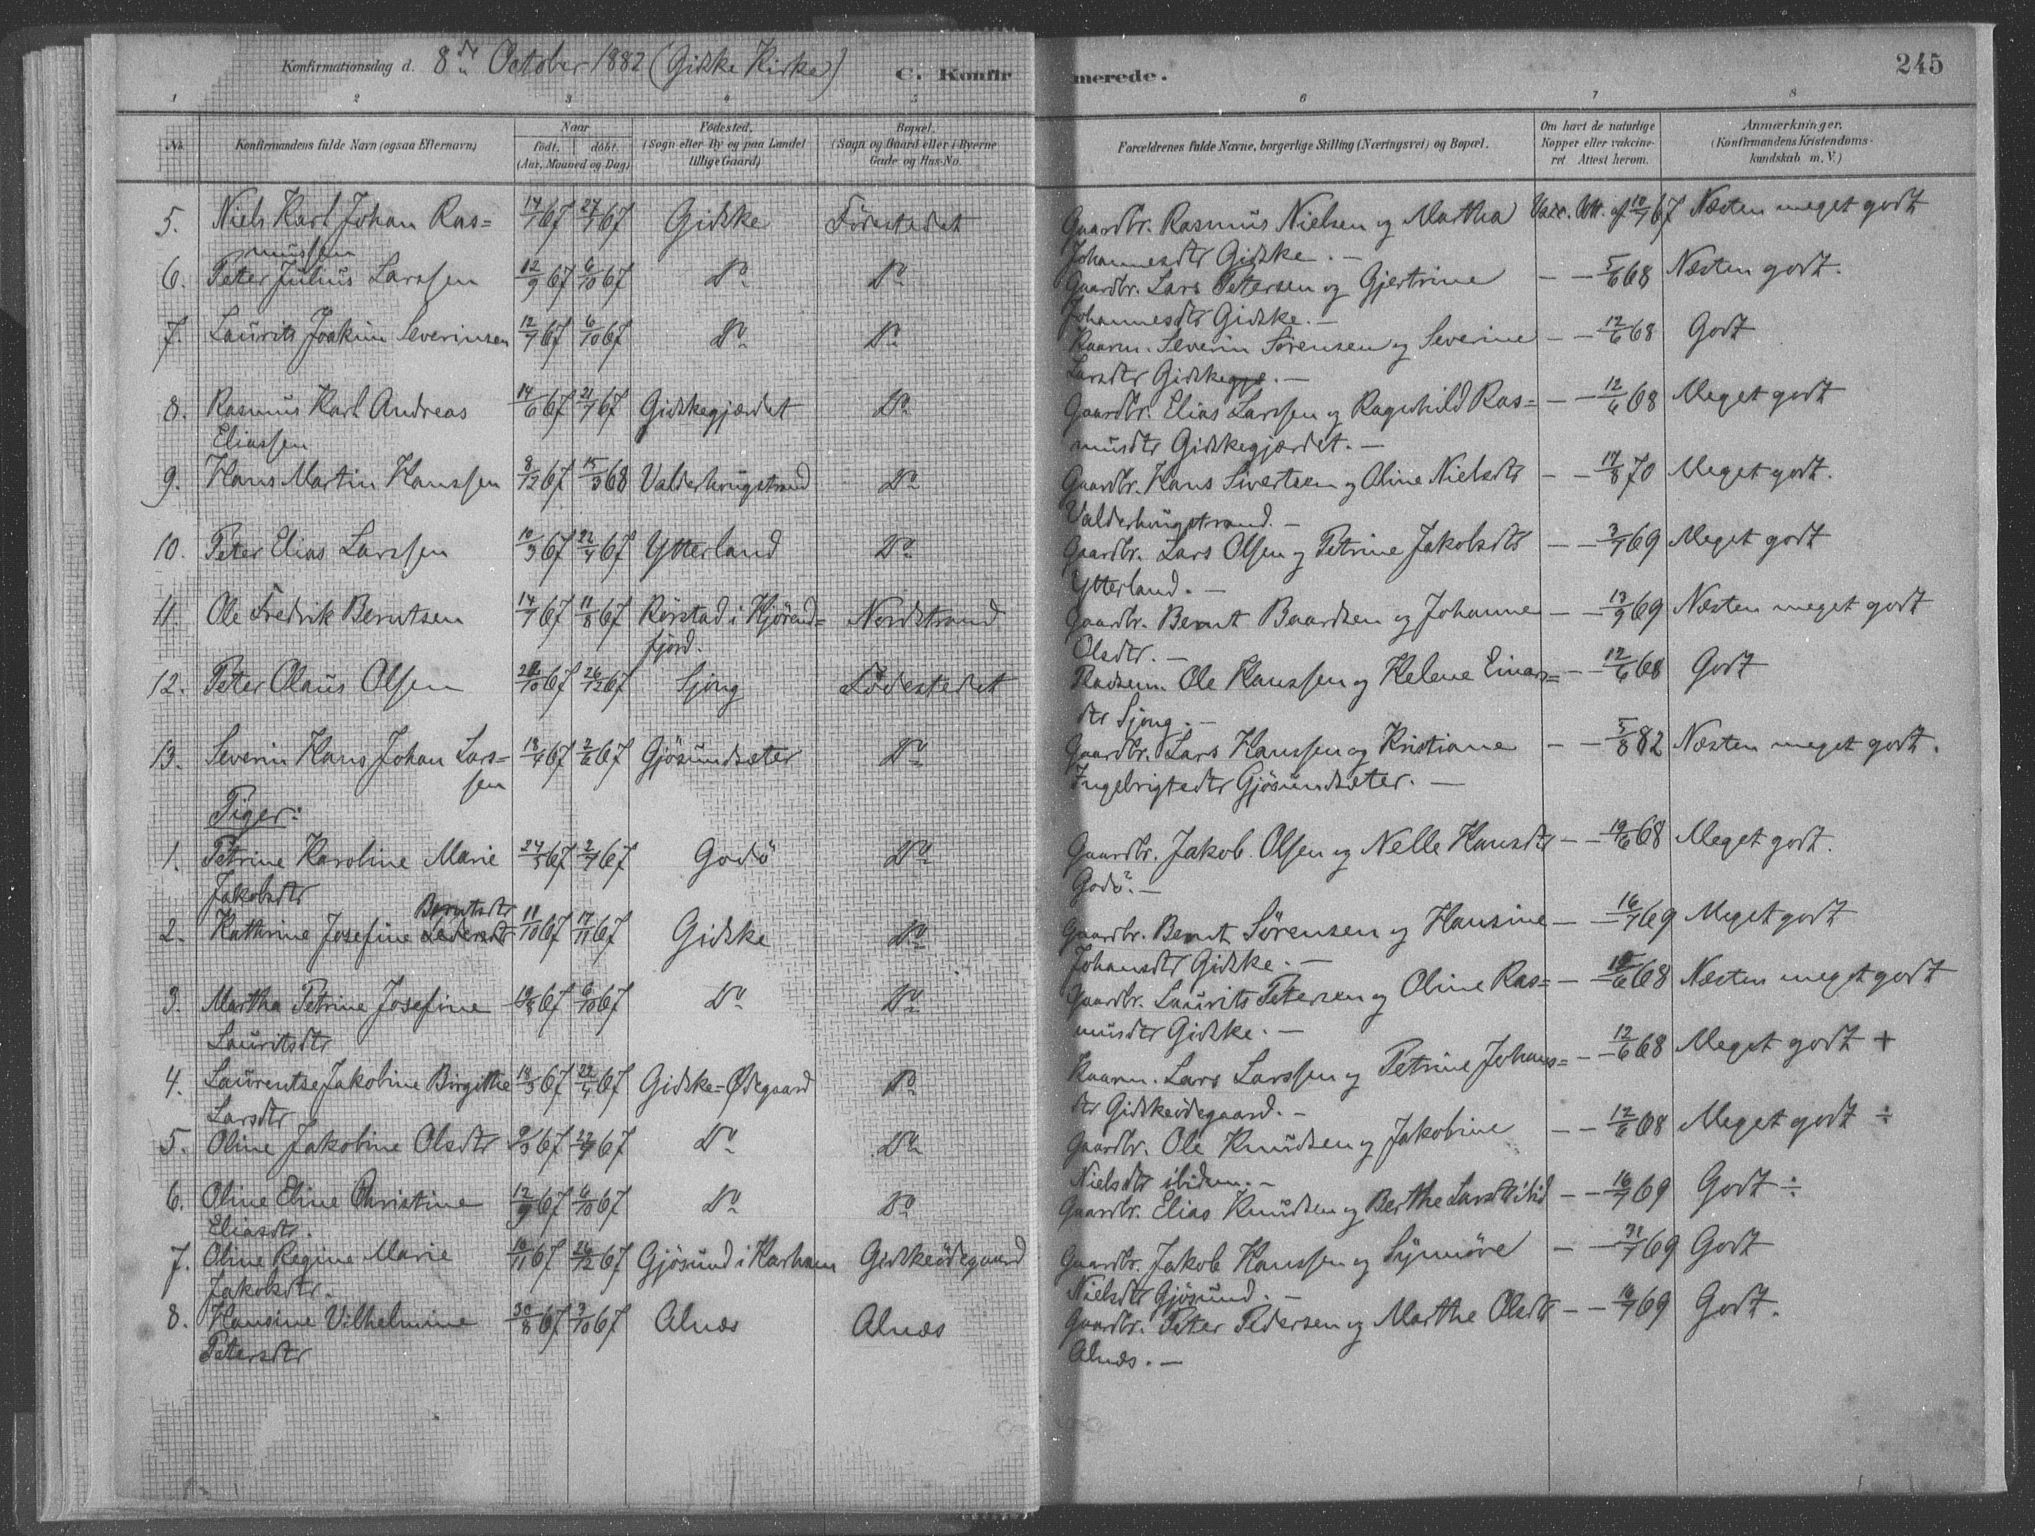 Konfirmationsdag d. 8de October 1882 (Gidske Kirke)
C. Konfirmerede.
245
1 2 3 4 5 6 7 8
No. Konfirmandens fulde Navn (ogsaa Efternavn) Naar født, døbt. (Aar, Maaned og Dag) Fødested. (Sogn eller By og paa Landet tillige Gaard) Bopæl. (Sogn og Gaard eller i Byerne Gade og Hus-No. Forældrenes fulde Navne, borgerlige Stilling (Næringsvei) og Bopæl. Om havt de naturlige Kopper eller vakcineret Attest herom. Anmærkninger. (Konfirmandens Kristendomskundskab m. V.)
5. Niels Karl Johan Ras= 14/7 67 27/7 67 Gidske Födestedet Gaardbr. Rasmus Nielsen og Martha Vacc. Att. af 10/7 67 Næsten meget godt
mussen Johannesdtr Gidske. —
6. Peter Julius Larssen 12/9 67 6/10 67 Do Do Gaardbr. Lars Petersen og Gjertrine — — 5/6 68 Næsten godt.
Johannesdtr Gidske. —
7. Laurits Joakim Severinsen 12/7 67 6/10 67 Do Do Kaarm. Severin Sörensen og Severine — — 12/6 68 Godt
Larsdtr Gidskegje. —
8. Rasmus Karl Andreas 14/6 67 21/7 67 Gidskegjærdet Do Gaardbr. Elias Larssen og Ragnhild Ras= — — 12/6 68 Meget godt
Eliassen musdtr Gidskegjærdet. —
9. Hans Martin Hanssen 8/12 67 15/3 68 Valderhougstrand Do Gaardbr. Hans Sivertsen og Oline Nielsdtr — — 17/8 70 Meget godt.
Valderhougstrand. —
10. Peter Elias Larssen 10/3 67 22/4 67 Ytterland Do Gaardbr. Lars Olsen og Petrine Jakobsdtr — — 3/7 69 Meget godt
Ytterland. —
11. Ole Fredrik Berntsen 14/7 67 11/8 67 Rörstad i Hjörend= Nordstrand Gaardbr. Bernt Baardsen og Johanne — — 13/9 69 Næsten meget godt
fjord. Olsdtr. —
12. Peter Olaus Olsen 20/10 67 26/12 67 Sjong Födestedet Pladsem. Ole Hanssen og Helene Einars= — — 12/6 68 Godt
dtr Sjong. —
13. Severin Hans Johan Lars= 18/4 67 2/6 67 Gjösundsæter Do Gaardbr. Lars Hanssen og Kristiane — — 5/8 82 Næsten meget godt.
sen Ingebrigtsdtr Gjösundsæter. —
Piger:
1. Petrine Karoline Marie 24/5 67 2/7 67 Godö Do Gaardbr. Jakob Olsen og Nelle Hansdtr — — 19/6 68 Meget godt.
Jakobsdtr Godö. —
Berntsdtr
2. Kathrine Josefine 11/10 67 17/11 67 Gidske Do Gaardbr. Bernt Sörensen og Hansine — — 16/7 69 Meget godt
Johansdtr Gidske. —
3. Martha Petrine Josefine 67 6/10 67 Do Do Gaardbr. Laurits Petersen og Oline Ras= — — 12/6 68 Næsten meget godt
Lauritsdtr musdtr Gidske. —
4. Laurentse Jakobine Birgithe 18/3 67 22/4 67 Gidske=Ödegaard Do Kaarm. Lars Larssen og Petrine Johans= — — 12/6 68 Meget godt +
Larsdtr dtr Gidskeödegaard. —
5. Oline Jakobine Olsdtr 9/3 67 22/4 67 Do Do Gaardbr. Ole Knudsen og Jakobine — — 12/6 68 Meget godt ÷
Nielsdtr ibidem. —
6. Oline Eline Christine 12/9 67 6/10 67 Do Do Gaardbr. Elias Knudsen og Berthe Larsdtr ibid — — 16/7 69 Godt ÷
Eliasdtr.
7. Oline Regine Marie 16/11 67 26/12 67 Gjösund i Harham Gidskeödegaard Gaardbr. Jakob Hanssen og Synnöve — — 31/7 69 Godt
Jakobsdtr. Nielsdtr Gjösund. —
8. Hansine Vilhelmine 30/8 67 3/10 67 Alnæs Alnæs Gaardbr. Peter Pedersen og Marthe Olsdtr — — 16/7 69 Godt.
Petersdtr Alnæs. —